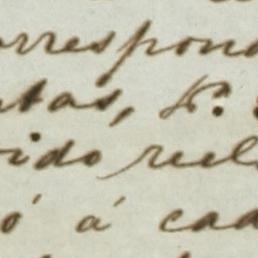 orrespond
ntas, N.
ido recl
ó á cad